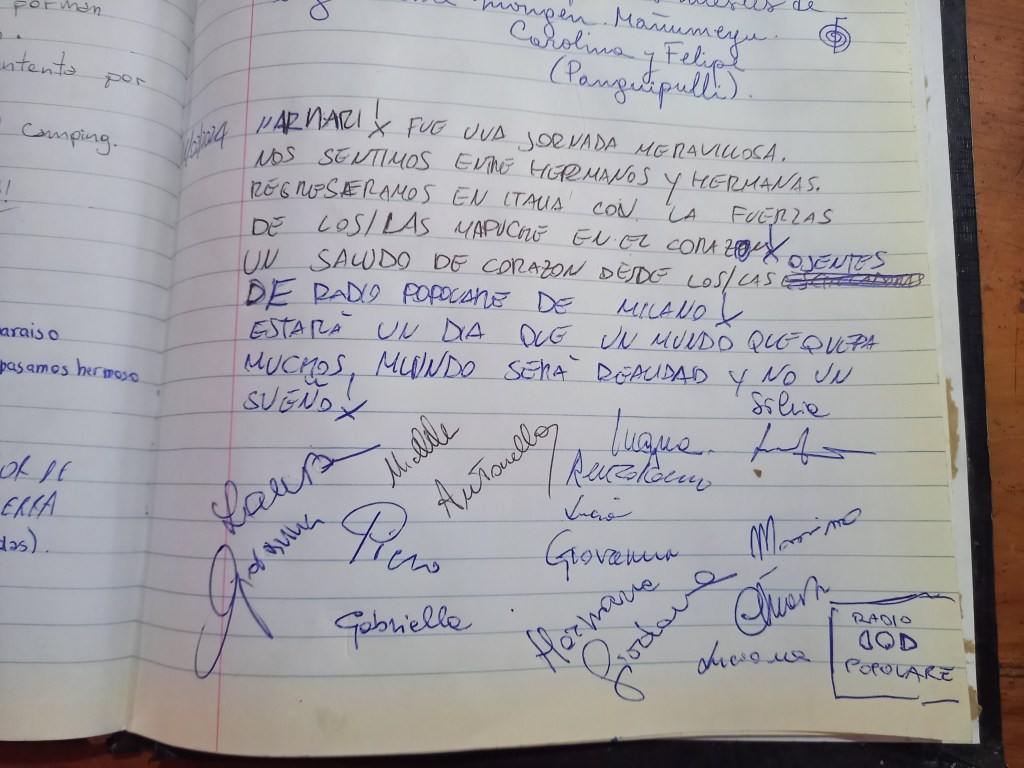 por man
ntento por
Camping.
araiso
pasamos hermoso
OR DE
ERRA
das).
mongen. Mañumeyu.
Carolina y Felipe
(Panguipulli).
MARI MARI! FUE UNA JORNADA MERAVILLOSA.
NOS SENTIMOS ENTRE HERMANOS Y HERMANAS.
REGRESERAMOS EN ITALIA CON LA FUERZAS
DE LOS/LAS MAPUCHE EN EL CORAZON!
UN SALUDO DE CORAZON DESDE LOS/LAS OJENTES
DE RADIO POPOLARE DE MILANO!
ESTARÀ UN DIA QUE UN MUNDO QUE QUEPA
MUCHOS, MUNDO SERÀ REALIDAD Y NO UN
SUEÑO!
Silvia
Michele
Antonella
Laura
Piero
Lucia
Giovanna
Massimo
Gabriella
Giordana
Luciana
RADIO
POPOLARE